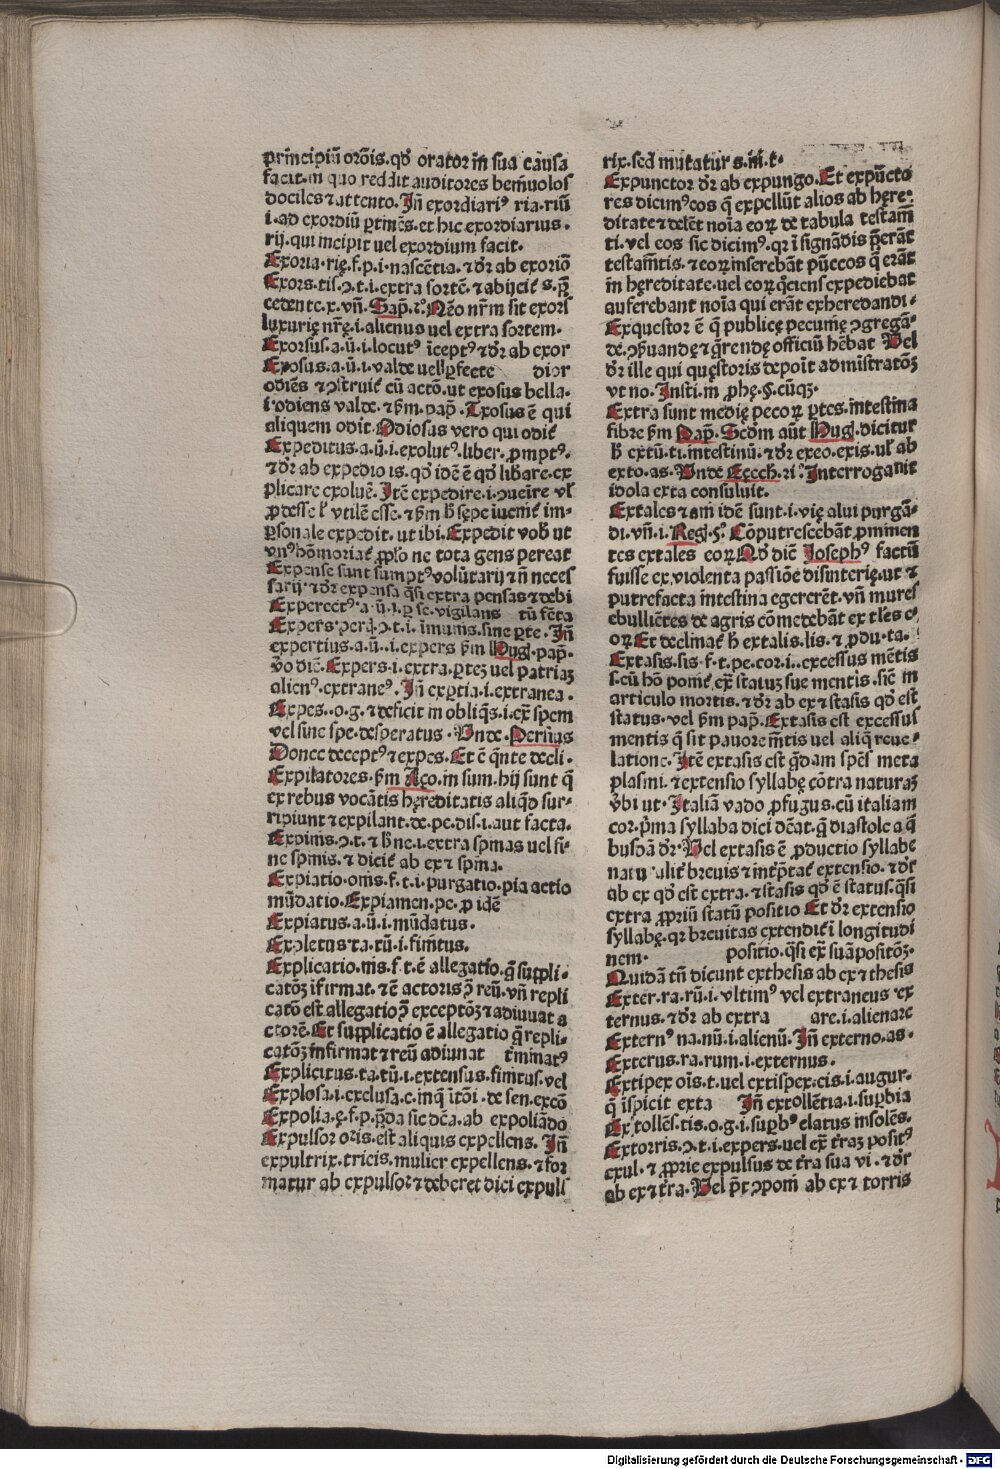 principiū orōis. qđ orator in sua causa
facit. in quo reddit auditores beniuolos
dociles ⁊ attento. Iñ exordiariꝰ ria. riū
i. ad exordiū ꝑtinēs. et hic exordiarius.
rij. qui incipit uel exordium facit.
Exoria. rię. f. p. i. nascētia. ⁊ dr̄ ab exorio
Exors. tis. ꝯ. t. i. extra sortē. ⁊ abijciť s. p̄
cedente. x. vñ. Sap̄. Nēo nr̄m sit exors
luxurię nr̄ę. i. alienus uel extra sortem.
Exorsus. a. ū. i. locutꝰ īceptꝰ ⁊ dr̄ ab exor
Exosus. a. ū. i. valde uel ꝑfecte dior
odiēs ⁊ ꝯstruiť cū actō. ut exosus bella.
i. odiens valde. ⁊ ẜm. pap̄. Exosus ē qui
aliquem odit. Odiosus vero qui odiť
Expeditus. a. ū. i. exolutꝰ. liber. promptꝰ.
⁊ dr̄ ab expedio is. qđ idē ē qđ libare. ex
plicare exoluē. Itē expedire. i. ꝯueīre vł
ꝓdesse ł vtilē esse. ⁊ ẜm ħ sępe iueniť im-
ꝑsonale expedit. ut ibi. Expedit vob̄ ut
vnꝰ hō moriať ꝓ pło ne tota gens pereat
Expense sunt sumptꝰ volūtarij ⁊ ñ neces
sarij. ⁊ dr̄ expensa qͣsi extra pensas ⁊ debi
Experrectꝰ. a. ū. i. ꝑ se. vigilans tū fc̄ta
Expers. perꝗ. ꝯ. t. i. imunis. sine ꝑte. Iñ
expertius. a. ū. i. expers ẜm Hug. pap̄.
v̊o dic̄. Expers. i. extra. ꝑteȝ uel patriaȝ
alienꝰ. extraneꝰ. Iñ exꝑtia. i. extranea.
Expes. o. g. ⁊ deficit in obliqͥs. i. ex̄ spem
vel sine spe. desperatus. Vnde. Persius
Donec deceptꝰ ⁊ expes. Et ē qͥnte decli.
Expilatores. ẜm Aço. in sum. hij sunt q̄
ex rebus vocātis hęreditatis aliqͥd sur-
ripiunt ⁊ expilant. de. pe. dis. i. aut facta.
Expinis. ꝯ. t. ⁊ h̄ ne. i. extra spinas uel si-
ne spinis. ⁊ diciť ab ex ⁊ spina.
Expiatio. onis. f. t. i. purgatio. pia actio
mūdatio. Expiamen. pe. ꝓ idē
Expiatus. a. ū. i. mūdatus.
Expletus. ta. tū. i. finitus.
Explicatio. nis. f. t. ē allegatio. q̄ suppli-
catōȝ ifirmat. ⁊ ē actoris ꝯ reū. vñ repli
catō est allegatio ꝯ exceptōȝ ⁊ adiuuat a
ctorē. Et supplicatio ē allegatio q̄ repli-
catōȝ infirmat ⁊ reū adiuuat t̄minatꝰ
Explicitus. ta. tū. i. extensus. finitus. vel
Explosa. i. exclusa. c. inq̄ itōi. de sen. excō
Expolia. ę. f. p. p̄da sic dc̄a. ab expoliādo
Expulsor oris. est aliquis expellens. Iñ
expultrix. tricis. mulier expellens. ⁊ for
matur ab expulsor ⁊ deberet dici expuls
rix. sed mutatur s. in. t.
Expunctor dr̄ ab expungo. Et expūcto
res dicimꝰ eos q̄ expellūt alios ab hęre-
ditate ⁊ delēt noīa eoꝝ de tabula testam̄
ti. vel eos sic dicimꝰ. qr ī signādis p̄erāt
testam̄tis. ⁊ eoꝝ inserebāt pūctos q̄ erāt
in hęreditate. uel eoꝝ qͦciens expediebat
auferebant noīa qui erāt exheredandi.
Exquestor ē q̄ publicę pecunię ꝯgregā-
de. ꝯẜuandę ⁊ q̄rendę officiū hēbat Vel
dr̄ ille qui quęstoris depoīt admīstratōȝ
vt no. Insti. in prohę. §. cūqȝ.
Extra sunt medię pecoꝝ ꝑtes. intestina
fibre ẜm Pap̄. Scd̄m aūt Hug. dicitur
ħ extū. ti. intestinū. ⁊ dr̄ exeo. exis. uł ab
exto. as. Vnde Eęech. Interrogauit
idola exta consuluit.
Extales ⁊ am̄ idē sunt. i. vię alui purgā-
di. vñ. i. Reg. Cōputrescebāt prominen
tes extales eoꝝ Qđ dic̄ Iosephꝰ factū
fuisse ex violenta passiōe disinterię. ut ⁊
putrefacta intestina egererēt. vñ mures
ebulliētes de agris cōmedebāt ex tłes e
oꝝ Et declinať ħ extalis. lis. ⁊ ꝓdu. ta.
Extasis. sis. f. t. pe. cor. i. excessus mētis
s. cū hō poniť ex̄ statuȝ sue mentis. sic̄ in
articulo mortis. ⁊ dr̄ ab ex ⁊ stasis qđ est
status. vel ẜm pap̄. Extasis est excessus
mentis q̄ sit pauore mētis uel aliq̄ reue-
latione. Itē extasis est qͣdam spēs meta
plasmi. ⁊ extensio syllabę cōtra naturaȝ
v̊bi ut. Italiā vado ꝓfugus. cū italiam
cor. pͥma syllaba dici dēat. q̄ diastole a q̄
busdā dr̄. Vel extasis ē ꝓductio syllabe
natu alił brevis ⁊ intp̄tať extensio. ⁊ dr̄
ab ex qđ est extra. ⁊ stasis qđ ē status. qͣsi
extra ꝓpriū statū positio Et dr̄ extensio
syllabę. qr breuitas extendiť i longitudi
nem. positio. qͣsi ex̄ suā positōȝ.
Quidā tñ dicunt exthesis ab ex ⁊ thesis
Exter. ra. rū. i. vltimꝰ vel extraneus ex
ternus. ⁊ dr̄ ab extra are. i. alienare
Externꝰ na. nū. i. alienū. Iñ externo. as.
Exterus. ra. rum. i. externus.
Extipex oīs. t. uel extispex. cis. i. augur.
q̄ īspicit exta Iñ extollētia. i. suꝑbia
Extollēs. tis. o. g. i. suꝑbꝰ elatus insolēs.
Extorris. ꝯ. t. i. expers. uel ex̄ t̄raȝ positꝰ
exul. ⁊ ꝓprie expulsus de t̄ra sua vi. ⁊ dr̄
ab ex ⁊ t̄ra. Vel p̄t ꝯponi ab ex ⁊ torris
Digitalisierung gefördert durch die Deutsche Forschungsgemeinschaft - DFG